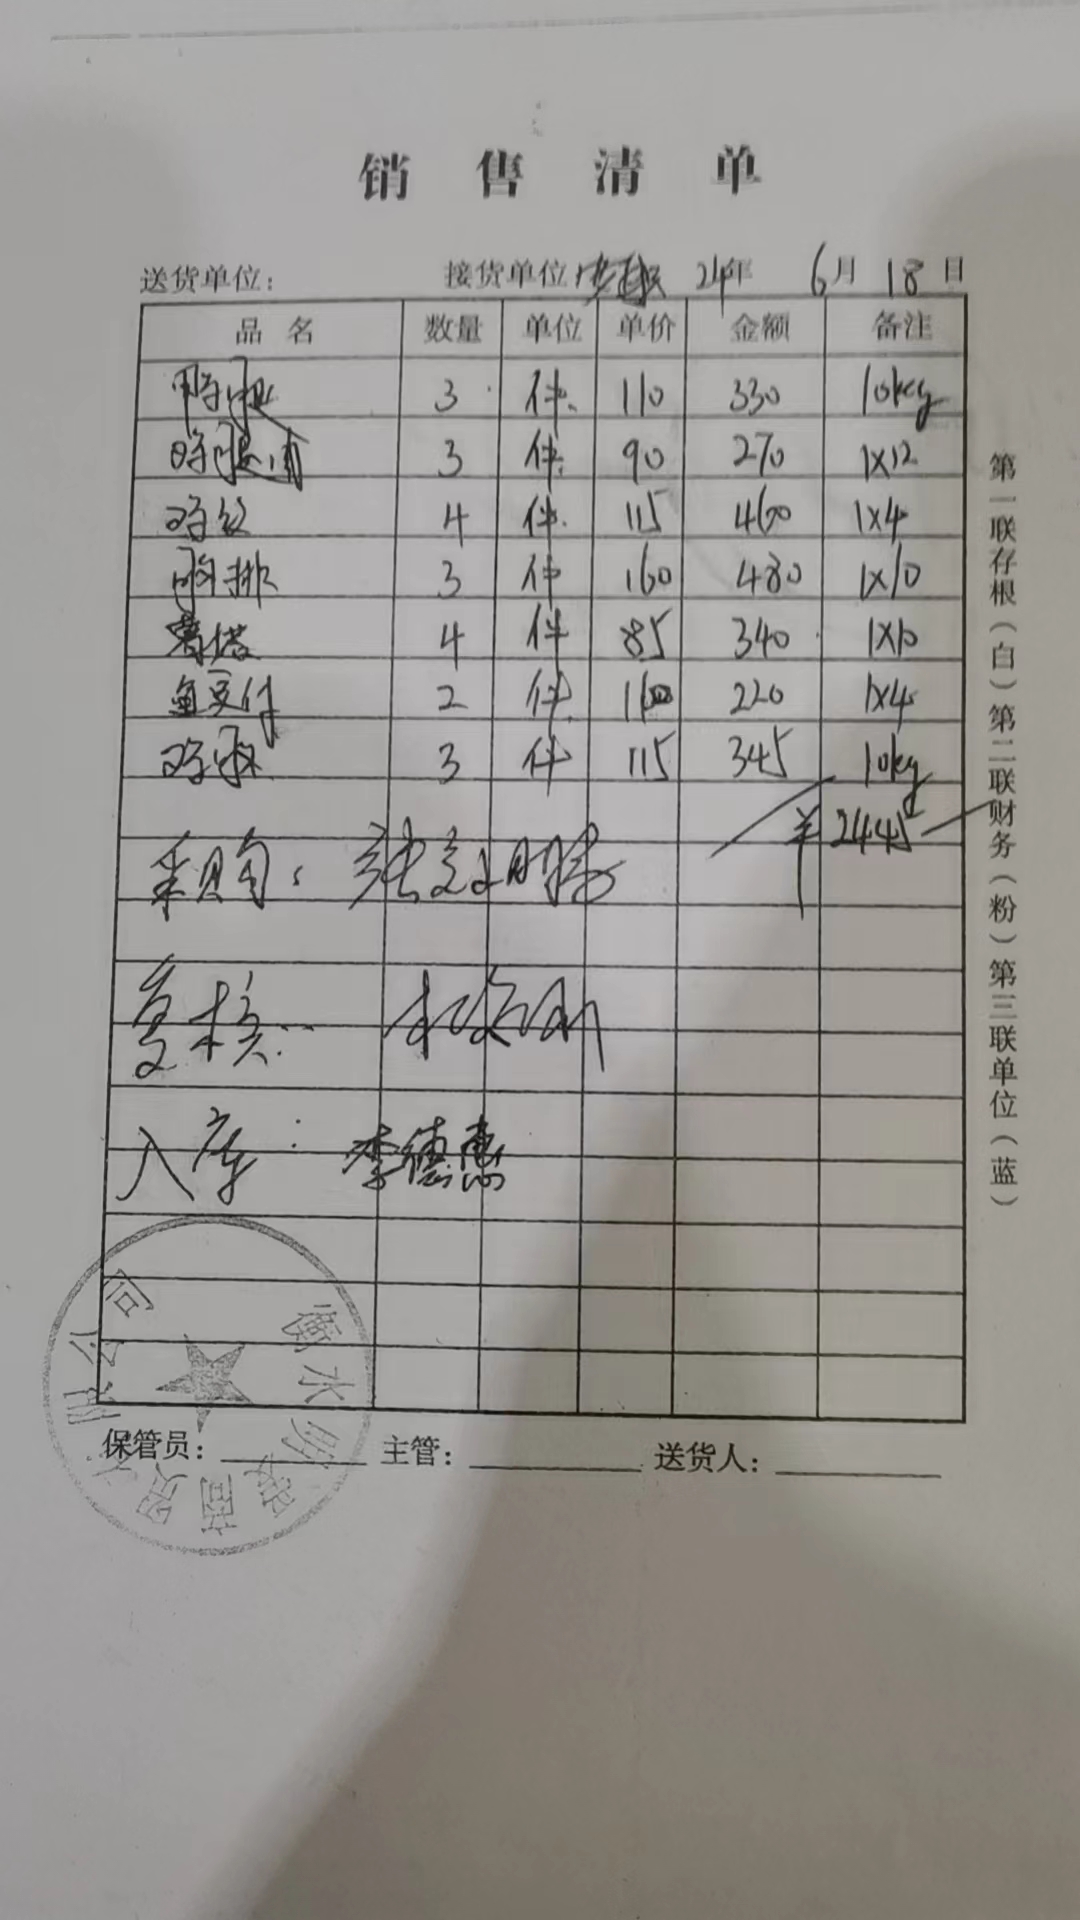 销售清单
送货单位： 接货单位 24年 6月 18日
品名 数量 单位 单价 金额 备注
鸭腿 3 件 110 330 10kg
3 件 90 270 1X12
4 件 115 460 1X4
排 3 件 160 480 1X10
薯塔 4 件 85 340 1X10
鱼豆付 2 件 220 1X4
鸡 3 件 115 345 10kg
¥2445
采购：张
复核：
入库：李德惠
保管员： 主管： 送货人：
第一联存根（白）第二联财务（粉）第三联单位（蓝）
衡水 商贸有限公司